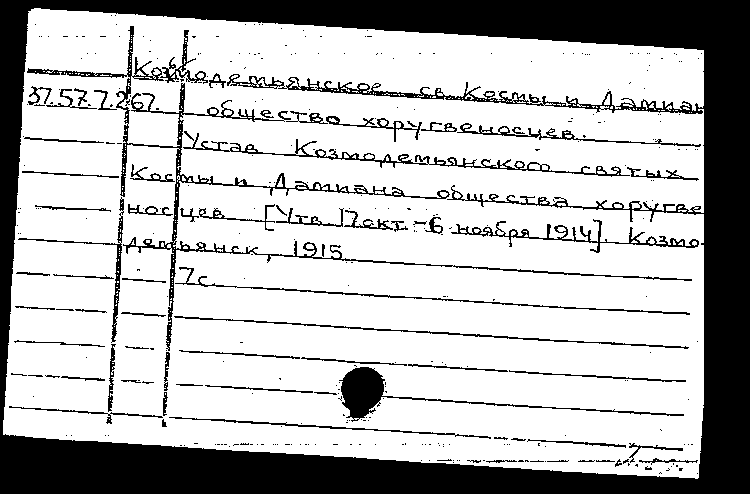 Козмодемьянское св. Космы и Дамиан
37.57.7.267. общество хоругвеносцев.
Устав Козмодемьянского святых
Космы и Дамиана общества хоругве
носцев [Утв. 17 окт. - 6 ноября 1914]. Козмо-
демьянск, 1915
7 с.